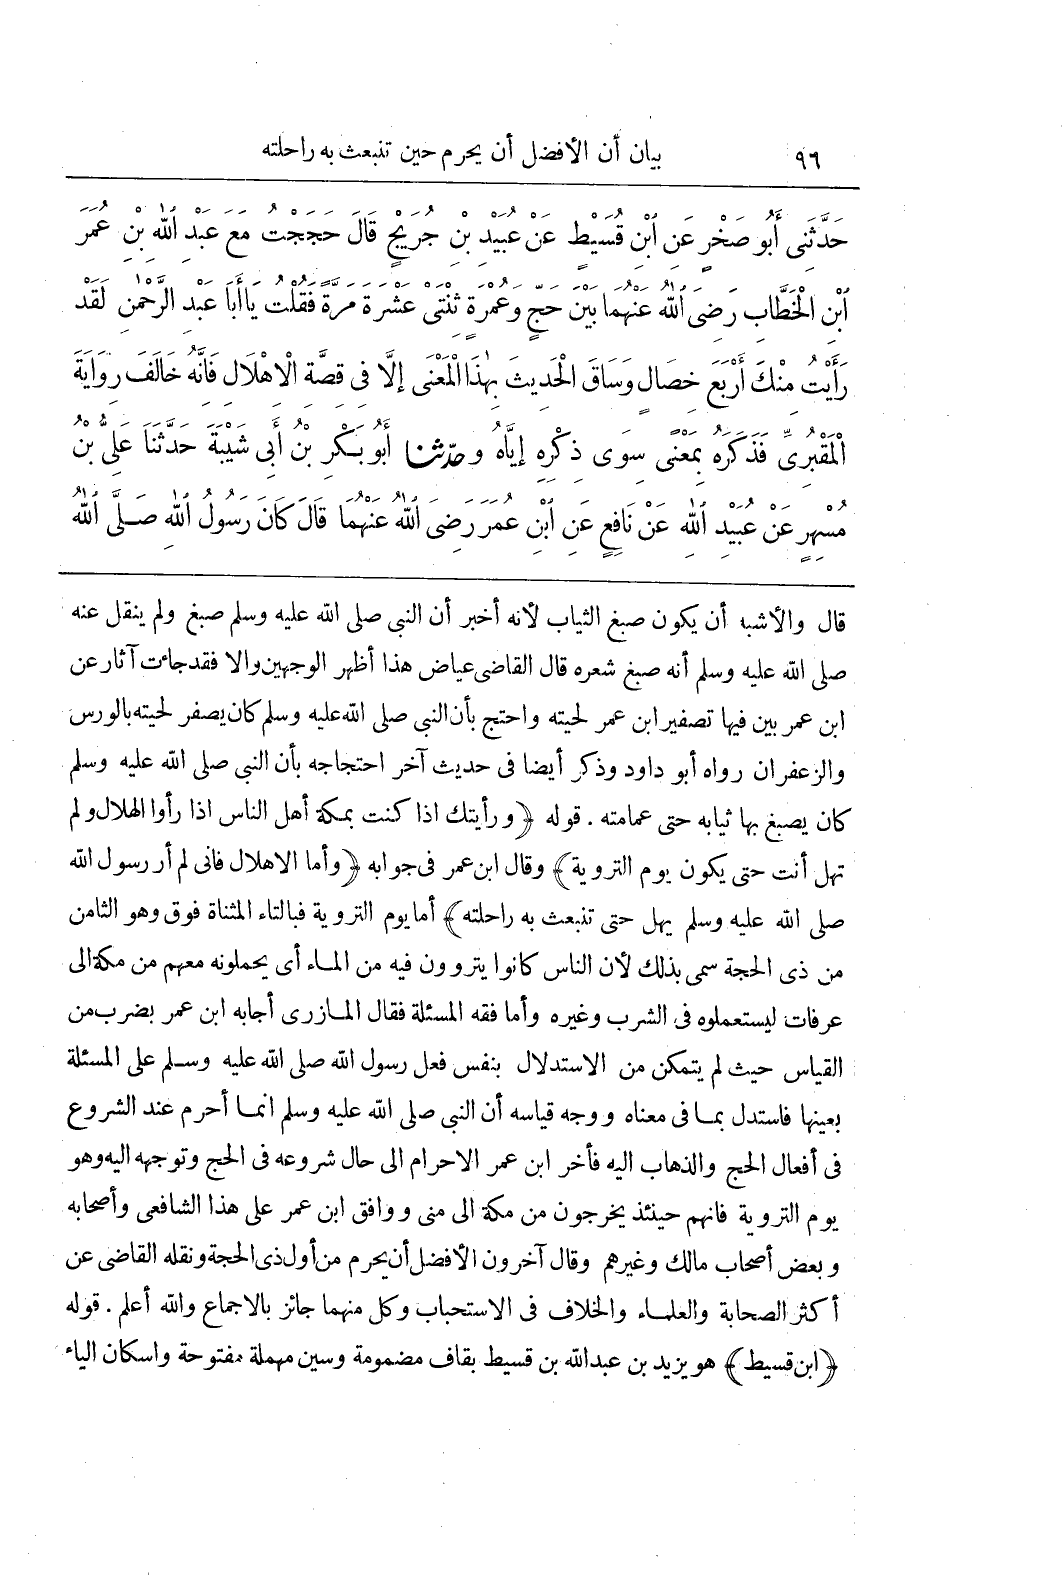 ٩٦ بيان أن الأفضل أن يحرم حين تنبعث به راحلته
حَدَّثَنِى أَبُو صَخْرٍ عَنِ ابْنِ قُسَيْطٍ عَنْ عُبَيْدِ بْنِ جُرَيْجٍ قَالَ حَجَجْتُ مَعَ عَبْدِ اللهِ بْنِ عُمَرَ
ابْنِ الْخَطَّابِ رَضِىَ اللهُ عَنْهُمَا بَيْنَ حَجٍّ وَعُمْرَةٍ ثِنْتَىْ عَشْرَةَ مَرَّةً فَقُلْتُ يَا أَبَا عَبْدِ الرَّحْمٰنِ لَقَدْ
رَأَيْتُ مِنْكَ أَرْبَعَ خِصَالٍ وَسَاقَ الْحَدِيثَ بِهٰذَا الْمَعْنَى إِلَّا فِى قِصَّةِ الْإِهْلَالِ فَإِنَّهُ خَالَفَ رِوَايَةَ
الْمَقْبُرِىِّ فَذَكَرَهُ بِمَعْنًى سِوَى ذِكْرِهِ إِيَّاهُ وحدّثنا أَبُو بَكْرِ بْنُ أَبِى شَيْبَةَ حَدَّثَنَا عَلِىُّ بْنُ
مُسْهِرٍ عَنْ عُبَيْدِ اللهِ عَنْ نَافِعٍ عَنِ ابْنِ عُمَرَ رَضِىَ اللهُ عَنْهُمَا قَالَ كَانَ رَسُولُ اللهِ صَلَّى اللهُ
قال والأشبه أن يكون صبغ الثياب لأنه أخبر أن النبى صلى الله عليه وسلم صبغ ولم ينقل عنه
صلى الله عليه وسلم أنه صبغ شعره قال القاضى عياض هذا أظهر الوجهين والا فقد جاءت آثار عن
ابن عمر بين فيها تصفير ابن عمر لحيته واحتج بأن النبى صلى الله عليه وسلم كان يصفر لحيته بالورس
والزعفران رواه أبو داود وذكر أيضا فى حديث آخر احتجاجه بأن النبى صلى الله عليه وسلم
كان يصبغ بها ثيابه حتى عمامته . قوله ﴿ورأيتك اذا كنت بمكة أهل الناس اذا رأوا الهلال ولم
تهل أنت حتى يكون يوم التروية﴾ وقال ابن عمر فى جوابه ﴿وأما الاهلال فانى لم أر رسول الله
صلى الله عليه وسلم يهل حتى تنبعث به راحلته﴾ أما يوم التروية فبالتاء المثناة فوق وهو الثامن
من ذى الحجة سمى بذلك لأن الناس كانوا يتروون فيه من المــاء أى يحملونه معهم من مكة الى
عرفات ليستعملوه فى الشرب وغيره وأما فقه المسئلة فقال المــازرى أجابه ابن عمر بضرب من
القياس حيث لم يتمكن من الاستدلال بنفس فعل رسول الله صلى الله عليه وسـلم على المسئلة
بعينها فاستدل بمــا فى معناه ووجه قياسه أن النبى صلى الله عليه وسلم انمــا أحرم عند الشروع
فى أفعال الحج والذهاب اليه فأخر ابن عمر الاحرام الى حال شروعه فى الحج وتوجهه اليه وهو
يوم التروية فانهم حينئذ يخرجون من مكة الى منى ووافق ابن عمر على هذا الشافعى وأصحابه
وبعض أصحاب مالك وغيرهم وقال آخرون الأفضل أن يحرم من أول ذى الحجة ونقله القاضى عن
أكثر الصحابة والعلمــاء والخلاف فى الاستحباب وكل منهما جائز بالاجماع والله أعلم . قوله
﴿ابن قسيط﴾ هو يزيد بن عبد الله بن قسيط بقاف مضمومة وسين مهملة مفتوحة واسكان الياء